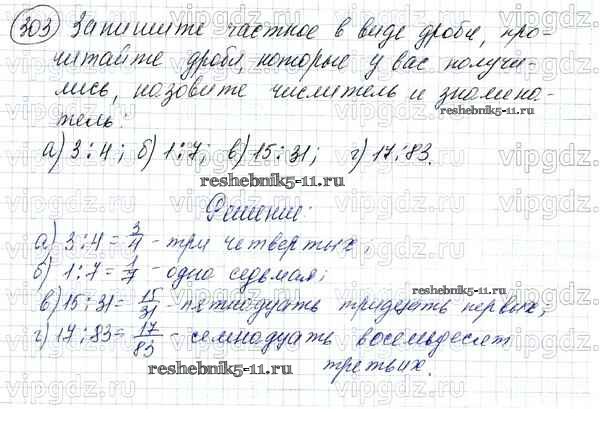 303 Запишите частное в виде дроби, про-
читайте дроби, которые у вас получи-
лись, назовите числитель и знамена-
тель:
reshebnik5-11.ru
а) 3:4; б) 1:7; в) 15:31; г) 17:83.
reshebnik5-11.ru
Решение:
а) 3:4 = 3/4 - три четвертых;
б) 1:7 = 1/7 - одна седьмая;
в) 15:31 = 15/31 - пятнадцать тридцать первых;
г) 17:83 = 17/83 - семнадцать восемьдесят
третьих.
reshebnik5-11.ru
vipgdz.